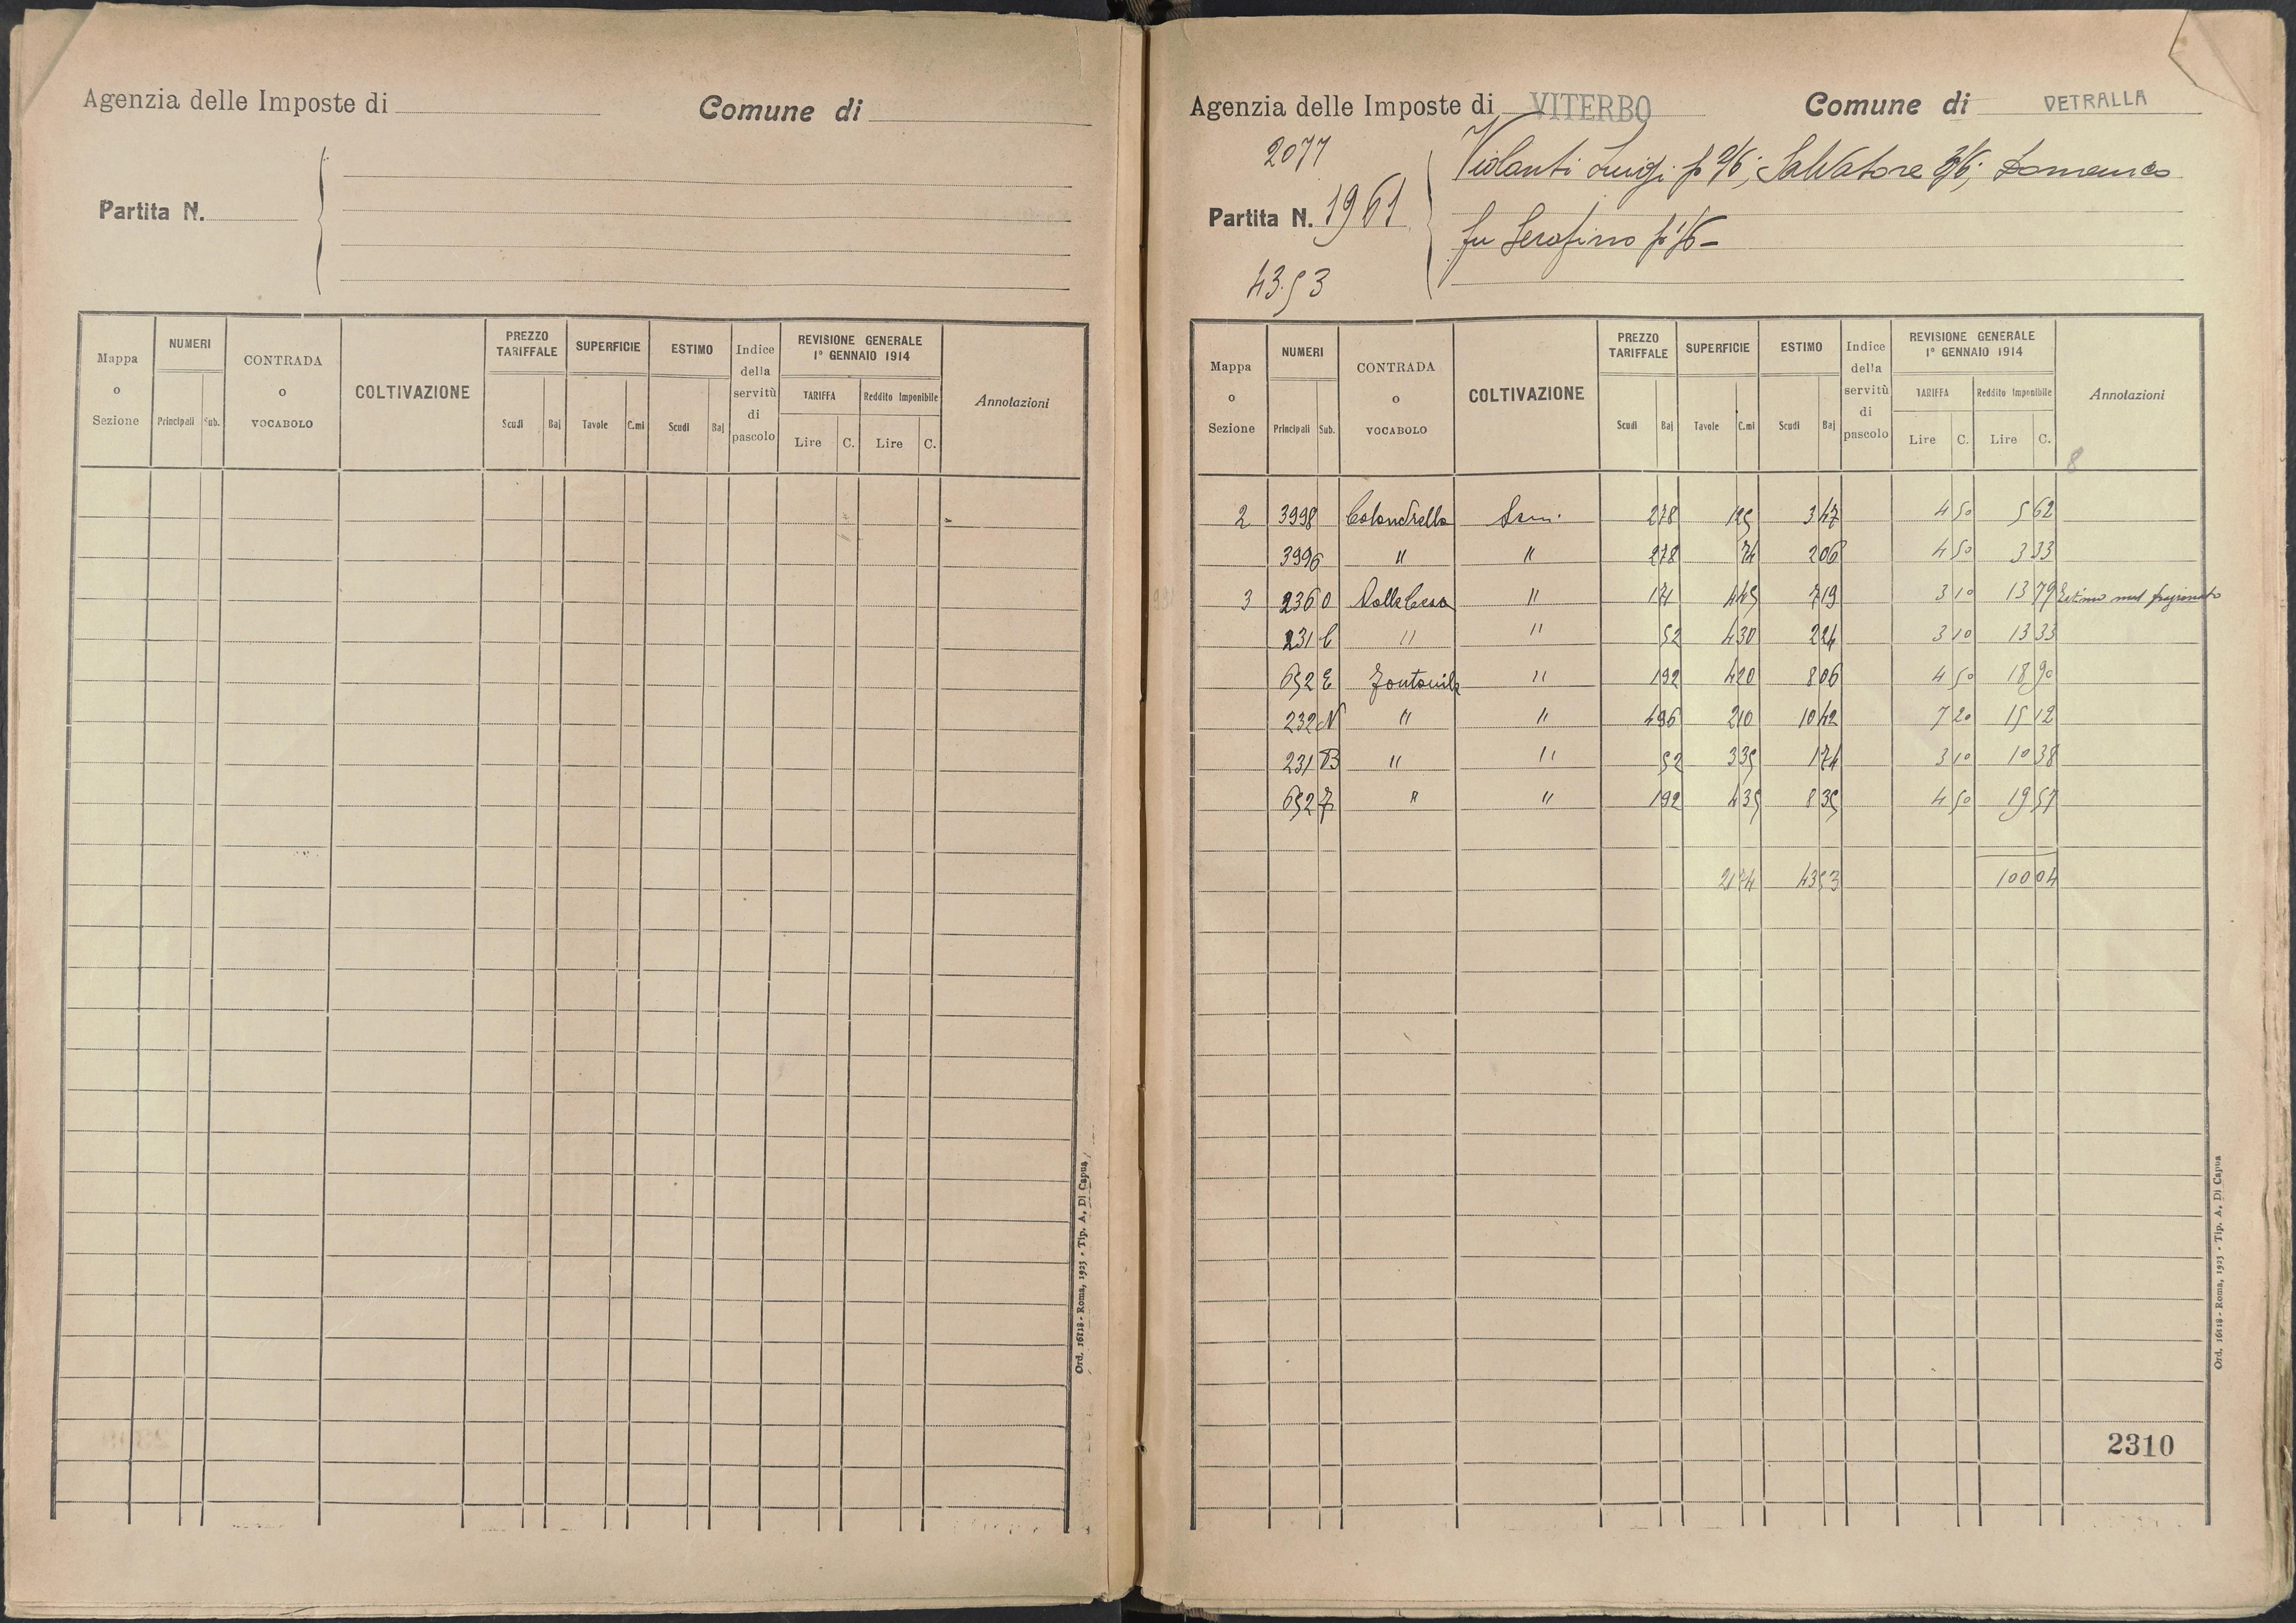 Agenzia delle Imposte di
Comune di
Partita N.
Mappa o Sezione
NUMERI
Principali Sub.
CONTRADA o VOCABOLO
COLTIVAZIONE
PREZZO TARIFFALE
Scudi Baj
SUPERFICIE
Tavole C.mi
ESTIMO
Scudi Baj
Indice della servitù di pascolo
REVISIONE GENERALE
1° GENNAIO 1914
TARIFFA Reddito Imponibile
Lire C. Lire C.
Annotazioni
Ord. 16118 - Roma, 1925 - Tip. A. Di Capua
Agenzia delle Imposte di VITERBO
Comune di VETRALLA
2077
Violanti Luigi p 2/6; Salvatore 3/6; Domenico
Partita N. 1961
fu Serafino p 1/6 -
43.53
Mappa o Sezione
NUMERI
Principali Sub.
CONTRADA o VOCABOLO
COLTIVAZIONE
PREZZO TARIFFALE
Scudi Baj
SUPERFICIE
Tavole C.mi
ESTIMO
Scudi Baj
Indice della servitù di pascolo
REVISIONE GENERALE
1° GENNAIO 1914
TARIFFA Reddito Imponibile
Lire C. Lire C.
Annotazioni
8
2 3998 Calandrella Sem. 278 125 347 4 50 5 62
3996 " " 278 74 206 4 50 3 33
3 236 0 " 171 445 719 3 10 13 79 Estimo mal
231 C " " 52 430 224 3 10 13 33
652 E Fontanile " 192 420 806 4 50 18 90
232 N " " 496 210 10 42 7 20 15 12
231 B " " 52 335 174 3 10 10 38
652 F " " 192 435 835 4 50 19 57
2174 4353 100 04
2310
Ord. 16118 - Roma, 1925 - Tip. A. Di Capua